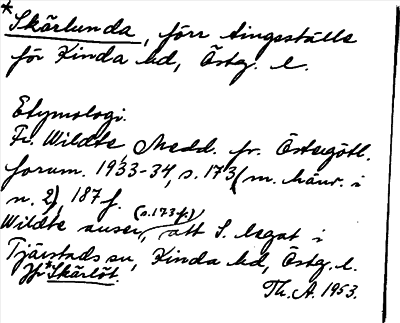 *Skärlunda, förr tingsställe
för Kinda hd, Östg. l.
Etymologi.
Fr. Wildte, Medd. fr. Östergötl.
fornm. 1933-34, s. 173 (m. hänv. i
n. 2), 187 f.
Wildte anser (s. 173 f.), att S. legat i
Tjärstads sn, Kinda hd, Östg. l.
Jfr *Skärlöt.
Th. A. 1953.